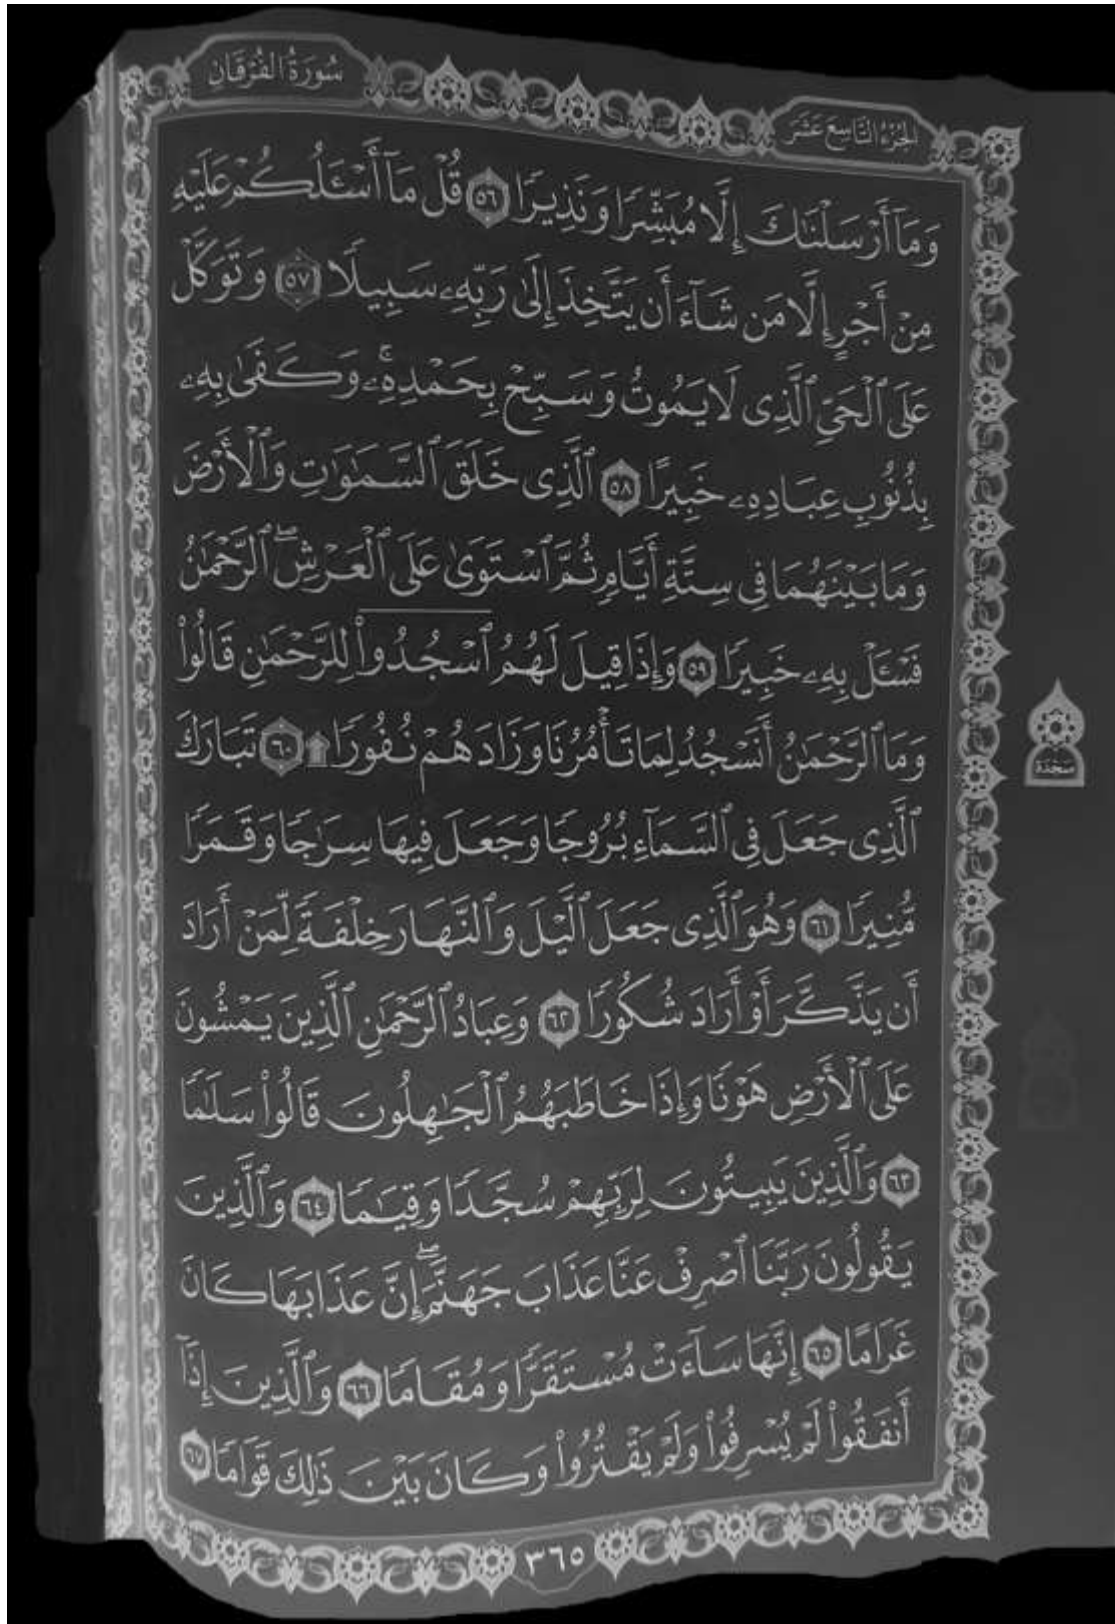 سُورَةُ الفُرْقَان
الجُزْءُ التَّاسِعَ عَشَرَ
وَمَآ أَرْسَلْنَٰكَ إِلَّا مُبَشِّرٗا وَنَذِيرٗا ٥٦ قُلْ مَآ أَسْـَٔلُكُمْ عَلَيْهِ
مِنْ أَجْرٍ إِلَّا مَن شَآءَ أَن يَتَّخِذَ إِلَىٰ رَبِّهِۦ سَبِيلٗا ٥٧ وَتَوَكَّلْ
عَلَى ٱلْحَيِّ ٱلَّذِى لَا يَمُوتُ وَسَبِّحْ بِحَمْدِهِۦۚ وَكَفَىٰ بِهِۦ
بِذُنُوبِ عِبَادِهِۦ خَبِيرًا ٥٨ ٱلَّذِى خَلَقَ ٱلسَّمَٰوَٰتِ وَٱلْأَرْضَ
وَمَا بَيْنَهُمَا فِى سِتَّةِ أَيَّامٖ ثُمَّ ٱسْتَوَىٰ عَلَى ٱلْعَرْشِۖ ٱلرَّحْمَٰنُ
فَسْـَٔلْ بِهِۦ خَبِيرٗا ٥٩ وَإِذَا قِيلَ لَهُمُ ٱسْجُدُوا۟ لِلرَّحْمَٰنِ قَالُوا۟
وَمَا ٱلرَّحْمَٰنُ أَنَسْجُدُ لِمَا تَأْمُرُنَا وَزَادَهُمْ نُفُورٗا ۩ ٦٠ تَبَارَكَ
ٱلَّذِى جَعَلَ فِى ٱلسَّمَآءِ بُرُوجٗا وَجَعَلَ فِيهَا سِرَٰجٗا وَقَمَرٗا
مُّنِيرٗا ٦١ وَهُوَ ٱلَّذِى جَعَلَ ٱلَّيْلَ وَٱلنَّهَارَ خِلْفَةٗ لِّمَنْ أَرَادَ
أَن يَذَّكَّرَ أَوْ أَرَادَ شُكُورٗا ٦٢ وَعِبَادُ ٱلرَّحْمَٰنِ ٱلَّذِينَ يَمْشُونَ
عَلَى ٱلْأَرْضِ هَوْنٗا وَإِذَا خَاطَبَهُمُ ٱلْجَٰهِلُونَ قَالُوا۟ سَلَٰمٗا
٦٣ وَٱلَّذِينَ يَبِيتُونَ لِرَبِّهِمْ سُجَّدٗا وَقِيَٰمٗا ٦٤ وَٱلَّذِينَ
يَقُولُونَ رَبَّنَا ٱصْرِفْ عَنَّا عَذَابَ جَهَنَّمَۖ إِنَّ عَذَابَهَا كَانَ
غَرَامًا ٦٥ إِنَّهَا سَآءَتْ مُسْتَقَرّٗا وَمُقَامٗا ٦٦ وَٱلَّذِينَ إِذَآ
أَنفَقُوا۟ لَمْ يُسْرِفُوا۟ وَلَمْ يَقْتُرُوا۟ وَكَانَ بَيْنَ ذَٰلِكَ قَوَامٗا ٦٧
سَجْدَة
٣٦٥